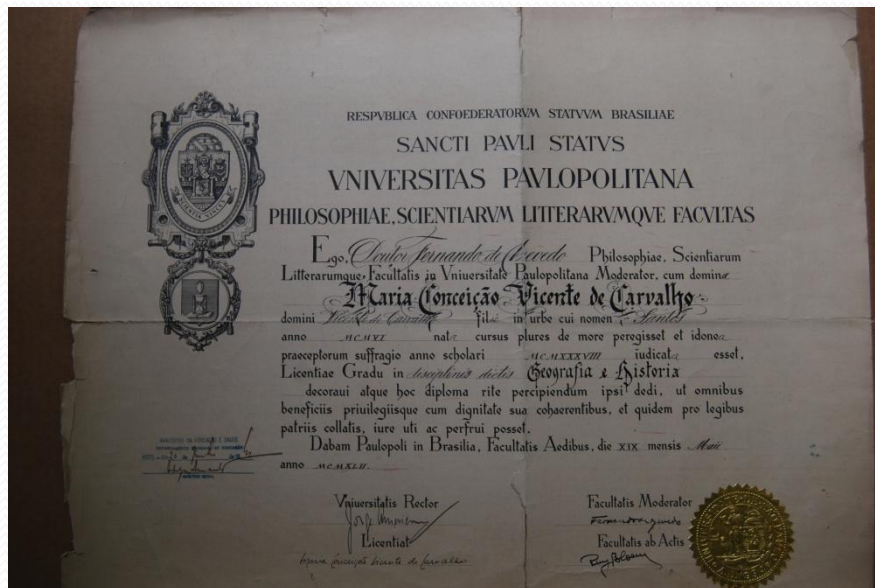 RESPVBLICA CONFOEDERATORVM STATVVM BRASILIAE
SANCTI PAVLI STATVS
VNIVERSITAS PAVLOPOLITANA
PHILOSOPHIAE, SCIENTIARVM LITTERARVMQVE FACVLTAS
SCIENTIA VINCES
Ego, Doutor Fernando de Azevedo Philosophiae, Scientiarum
Litterarumque Facultatis in Vniuersitate Paulopolitana Moderator, cum domina
Maria Conceição Vicente de Carvalho
domini Vicente de Carvalho filia in urbe cui nomen Santos
anno MCMVI nata cursus plures de more peregisset et idonea
praeceptorum suffragio anno scholari MCMXXXVIII iudicata esset,
Licentiae Gradu in disciplinis dictis Geografia e Historia
decoraui atque hoc diploma rite percipiendum ipsi dedi, ut omnibus
beneficiis priuilegiisque cum dignitate sua cohaerentibus, et quidem pro legibus
patriis collatis, iure uti ac perfrui posset.
Dabam Paulopoli in Brasilia, Facultatis Aedibus, die XIX mensis Maii
anno MCMXLII
MINISTÉRIO DA EDUCAÇÃO E SAÚDE
Vniuersitatis Rector
Jorge Americano
Licentiat
Maria Conceição Vicente de Carvalho
Facultatis Moderator
Fernando de Azevedo
Facultatis ab Actis